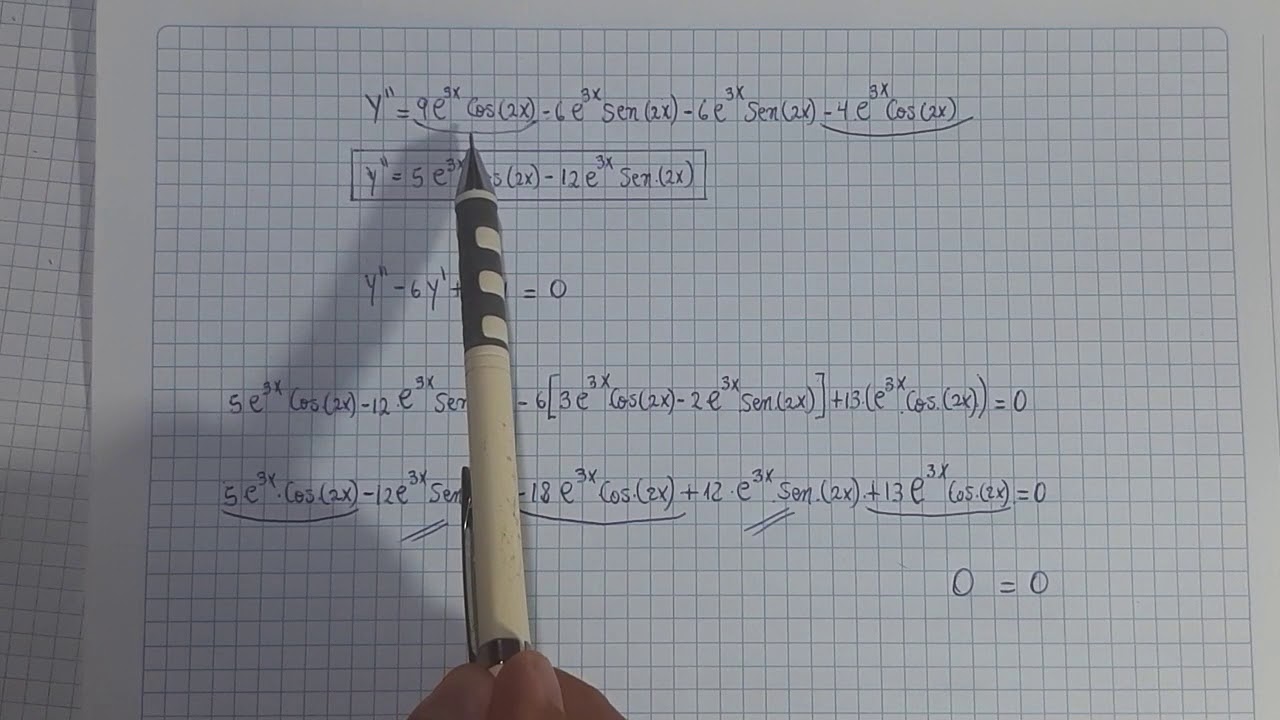 y'' = 9e^3x Cos(2x) - 6e^3x Sen(2x) - 6e^3x Sen(2x) - 4e^3x Cos(2x)
y'' = 5e^3x os(2x) - 12e^3x Sen.(2x)
y'' - 6y' + = 0
5e^3x Cos(2x) - 12.e^3x Sen - 6[3e^3x Cos(2x) - 2e^3x Sen(2x)] + 13(e^3x.Cos.(2x)) = 0
5e^3x.Cos(2x) - 12e^3x Sen - 18e^3x Cos.(2x) + 12.e^3x.Sen.(2x) + 13e^3x Cos.(2x) = 0
0 = 0